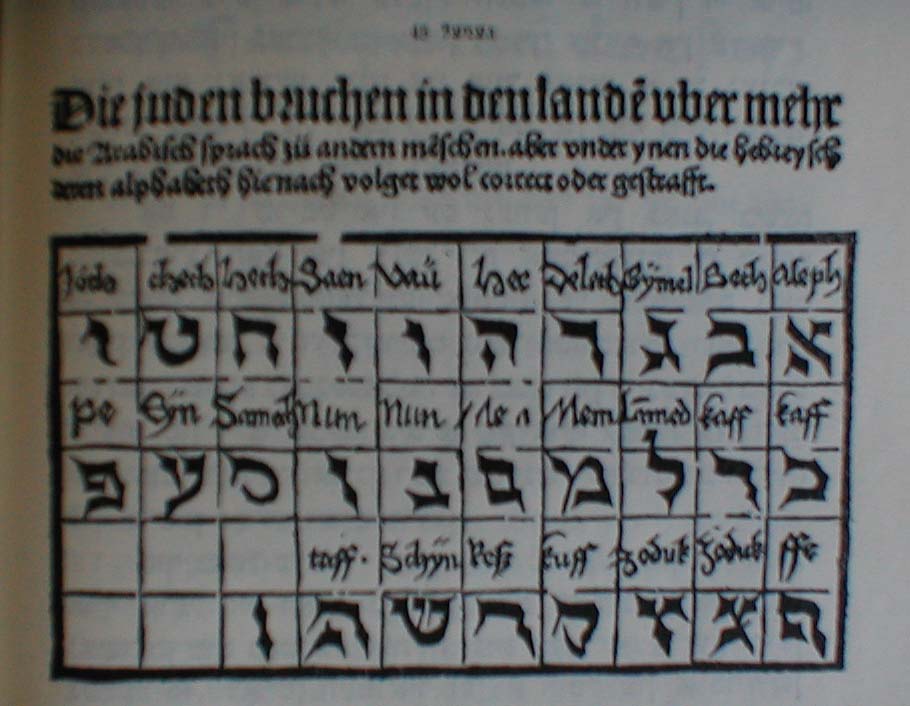 Die juden bruchen in den landē vber mehr
die Arabisch sprach zů andern mēschen. aber vnder ynen die hebreysch
deren alphabeth hienach volget wol correct oder gestrafft.
Jóth cheth Saen Vaü hee Deleth Gÿmel Beth Aleph
א ב ג ד ה ו ז ח ט י
pe Eÿn Samech Num Nun Mem Lamed kaff kaff
כ ך ל מ ם נ ן ס ע פ
taff. Schÿn Resch kuff zoduk zoduk ffe
ף צ ץ ק ר ש ת ו